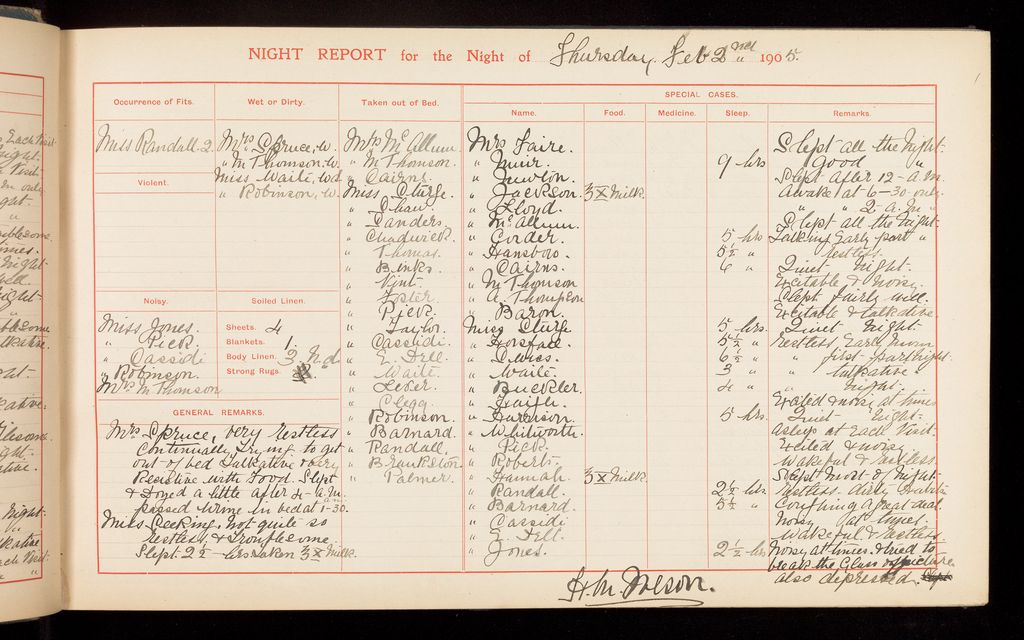 NIGHT REPORT for the Night of Thursday, Feb 2nd 1905.
SPECIAL CASES.
Occurrence of Fits.
Miss Randall. 2.
Violent.
Noisy.
Miss Jones.
" Pick
" Cassidi
" Robinson.
Mrs M Thomson
Wet or Dirty.
Mrs Spruce, w.
" M Thomson, w.
Miss Waite, wd
" Robinson, w.
Soiled Linen.
Sheets. 4
Blankets. 1.
Body Linen. 3
Strong Rugs.
GENERAL REMARKS.
Mrs Spruce, very restless
continually trying to get
out of bed Talkative & very
Resistive with Food. Slept
& Dozed a little after 4- a.m.
passed urine in bed at 1-30.
Miss Peeking, not quite so
restless & troublesome.
Slept 2½ - hrs taken 3 x milk.
Taken out of Bed.
Mrs McAllum.
" M Thomson.
" Cairns.
Miss Clurfe.
" Shaw
" Sanders.
" Chadwick.
" Thomas.
" Binks.
" Vint.
" Foster.
" Pick.
" Taylor.
" Cassidi.
" E. Dell.
" Waite.
" Leker.
" Clegg.
" Robinson.
" Barnard.
" Randall.
" Brankston.
" Palmer.
Name.
Mrs Faire.
" Muir.
" Newton.
" Jackson
" Lloyd.
" McAllum.
" Corder.
" Hansbow.
" Cairns.
" M Thomson
" A. Thompson
" Baron.
Miss Clurfe
" Horsfall
" Swiss.
" Waite.
" Buckler.
" Haigh.
" Harrison
" Whitworth.
" Pick.
" Roberts.
" Hannah.
" Randall.
" Barnard.
" Cassidi
" E. Dell.
" Jones.
Food.
3 x Milk.
3 x Milk.
Medicine.
Sleep.
9 hrs
5 hrs
5½ "
6 "
5 hrs.
5½ "
6½ "
3 "
4 "
5 hrs.
2½ hrs
5½ "
2½ hrs
Remarks.
Slept all the Night.
" good "
Slept after 12- a.m.
Awake at 6-30 only.
" " 2- a.m "
Slept all the night.
Talking Early part "
" restless "
Quiet night.
Excitable & noisy.
Slept fairly well.
Excitable & talkative.
Quiet night.
restless Early Morn
" first-part night.
" talkative "
" night.
Excited & noisy at times
Quiet night.
asleep at Each Visit.
Excited & noisy.
Wakeful & restless.
Slept most of Night.
restless. dirty Habits
Coughing a great deal.
Noisy at times.
Wakeful & restless.
Noisy at times. & tried to
break the Glass of picture
also depressed.